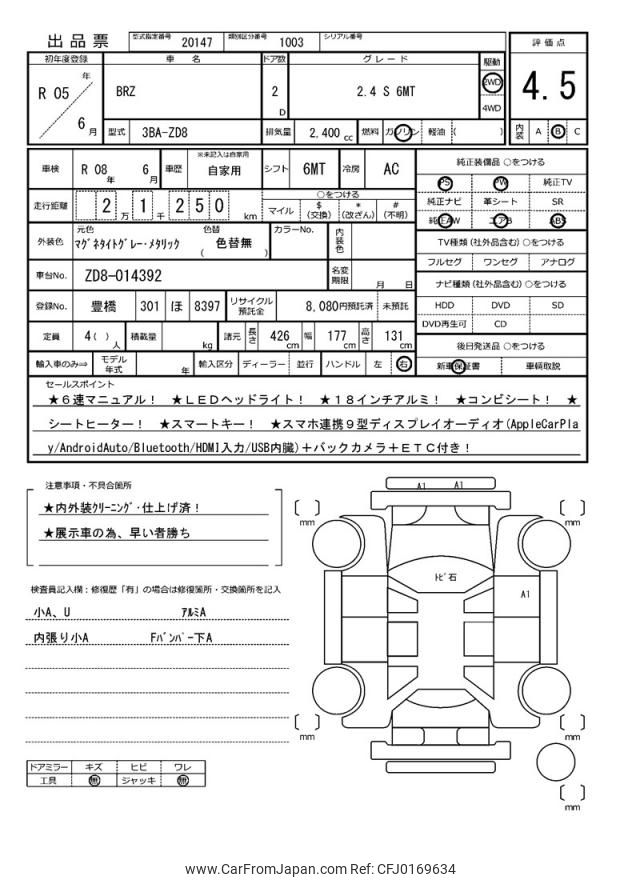 出品票 型式指定番号 20147 類別区分番号 1003 シリアル番号
初年度登録 車名 ドア数 グレード 駆動 評価点
R 05 年 6 月 BRZ 2 D 2.4 S 6MT 2WD 4WD 4.5
型式 3BA-ZD8 排気量 2,400 cc 燃料 ガソリン 軽油 ( ) 内装 A B C
車検 R 08 年 6 月 車歴 ※未記入は自家用 自家用 シフト 6MT 冷房 AC
純正装備品 ○をつける
PS PW 純正TV
純正ナビ 革シート SR
純正AW エアB ABS
走行距離 2 万 1 千 2 5 0 km ○をつける マイル $(交換) *(改ざん) #(不明)
外装色 元色 マグネタイトグレー・メタリック 色替 ( 色替無 ) カラーNo. 内装色
TV種類 (社外品含む) ○をつける
フルセグ ワンセグ アナログ
車台No. ZD8-014392 名変期限 月 日
ナビ種類 (社外品含む) ○をつける
HDD DVD SD
DVD再生可 CD
登録No. 豊橋 301 ほ 8397 リサイクル預託金 8,080円預託済 未預託
定員 4( ) 人 積載量 kg 諸元 長さ 426 cm 幅 177 cm 高さ 131 cm
後日発送品 ○をつける
新車保証書 車輌取説
輸入車のみ⇨ モデル年式 年 輸入区分 ディーラー 並行 ハンドル 左 右
セールスポイント
★6速マニュアル! ★LEDヘッドライト! ★18インチアルミ! ★コンビシート! ★
シートヒーター! ★スマートキー! ★スマホ連携9型ディスプレイオーディオ(AppleCarPla
y/AndroidAuto/Bluetooth/HDMI入力/USB内臓)+バックカメラ+ETC付き!
注意事項・不具合箇所
★内外装クリーニング・仕上げ済!
★展示車の為、早い者勝ち
検査員記入欄:修復歴「有」の場合は修復箇所・交換箇所を記入
小A、U アルミA
内張り小A Fバンパー下A
A1 A1
トビ石
A1
mm
mm
mm
mm
mm
ドアミラー キズ ヒビ ワレ
工具 無 ジャッキ 無
www.CarFromJapan.com Ref: CFJ0169634